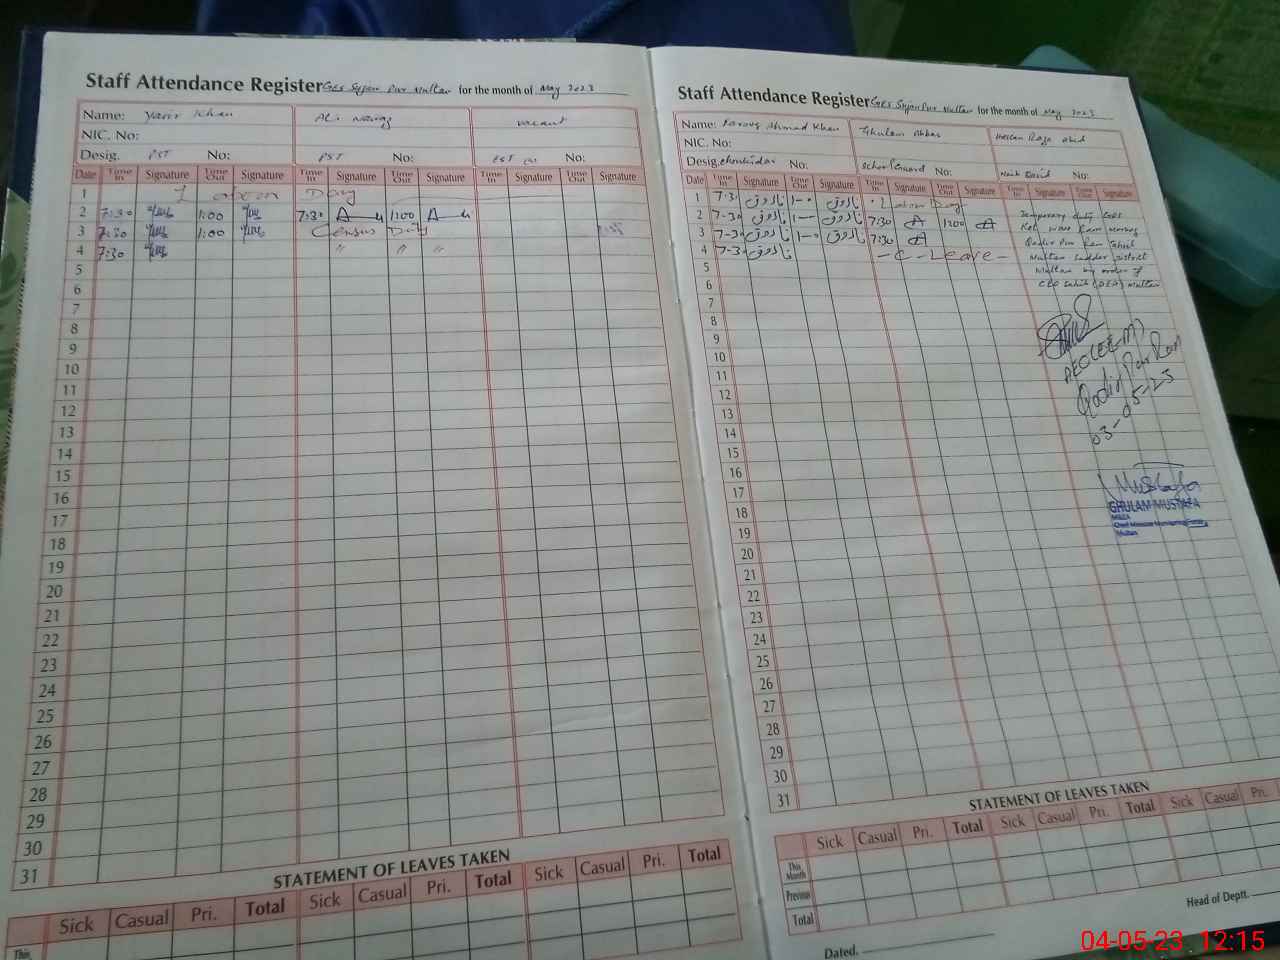 Staff Attendance Register GES Sujan Pur Multan for the month of May 2023
Name: Yasir Khan Ali Nawaz vacant
NIC. No:
Desig. PST No: PST No: EST No:
Date Time In Signature Time Out Signature Time In Signature Time Out Signature Time In Signature Time Out Signature
1 Labour Day
2 7:30 1:00 7:30 1:00
3 7:30 1:00 Census Duty
4 7:30 " " "
5
6
7
8
9
10
11
12
13
14
15
16
17
18
19
20
21
22
23
24
25
26
27
28
29
30
31
STATEMENT OF LEAVES TAKEN
Sick Casual Pri. Total Sick Casual Pri. Total Sick Casual Pri. Total
This
Staff Attendance Register GES Sujan Pur Multan for the month of May 2023
Name: Farooq Ahmad Khan Ghulam Abbas Hassan Raza
NIC. No:
Desig. Chowkidar No: School Guard No: Naib Qasid No:
Date Time In Signature Time Out Signature Time In Signature Time Out Signature Time In Signature Time Out Signature
1 7-30 فاروق ۱-۰۰ فاروق Labour Day
2 7-30 فاروق ۱-۰۰ فاروق 7:30 1200 Temporary duty GES
3 7-30 فاروق ۱-۰۰ فاروق 7:30
4 7-30 فاروق - C - Leave - Multan Saddar District
5 Multan by order of
6 CEO (DEA) Multan
7
8
9
10
11
12
13
14
15
16
17
18
19
20
21
22
23
24
25
26
27
28
29
30
31
AEO (EE-M)
Qadir Pur Ran
03-05-23
Mustafa
GHULAM MUSTAFA
Multan
STATEMENT OF LEAVES TAKEN
Sick Casual Pri. Total Sick Casual Pri. Total Sick Casual Pri.
This Month
Previous
Total
Dated.
Head of Deptt.
04-05-23 12:15